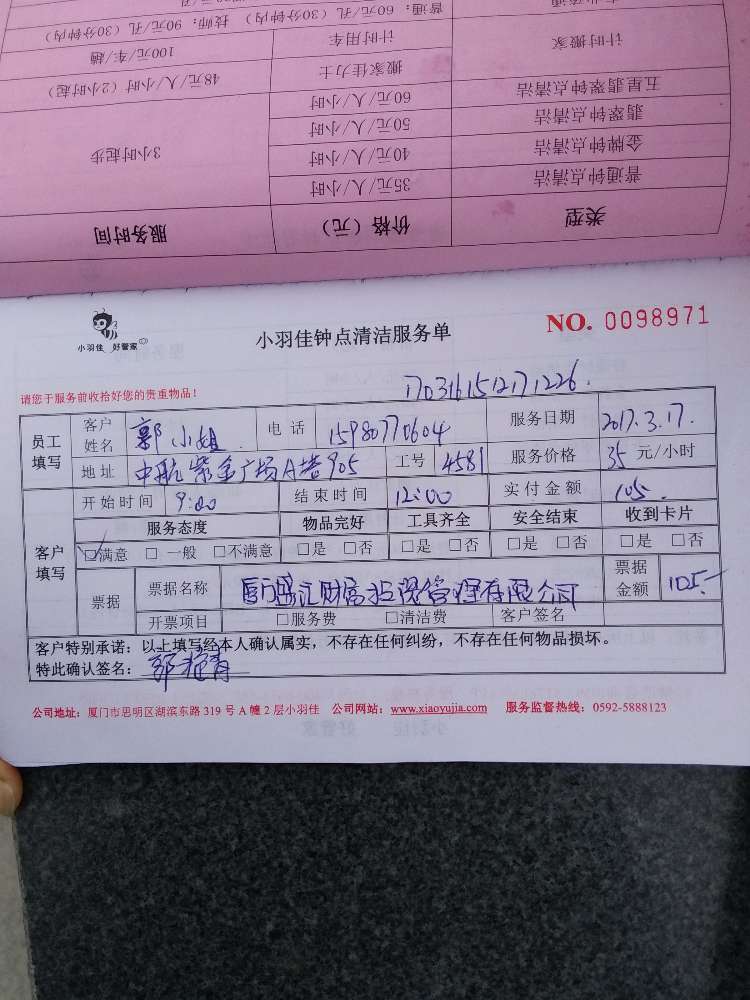 普通：60元/孔（30分钟内） 技师：90元/孔（30分钟内）
计时搬家 计时用车 100元/车/趟
搬家佳力士 48元/人/小时（2小时起）
五星翡翠钟点清洁 60元/人/小时 3小时起步
翡翠钟点清洁 50元/人/小时
金牌钟点清洁 40元/人/小时
普通钟点清洁 35元/人/小时
类型 价格（元） 服务时间
小羽佳 好管家
小羽佳钟点清洁服务单
NO. 0098971
请您于服务前收拾好您的贵重物品！
1703161512171226.
员工填写 客户姓名 郭小姐 电话 15980770604 服务日期 2017.3.17.
地址 中航紫金广场A塔905 工号 4581 服务价格 35 元/小时
客户填写 开始时间 9:00 结束时间 12:00 实付金额 105.
服务态度 物品完好 工具齐全 安全结束 收到卡片
☑满意 □一般 □不满意 □是 □否 □是 □否 □是 □否 □是 □否
票据 票据名称 厦门盛汇财富投资管理有限公司 票据金额 105.-
开票项目 □服务费 □清洁费 客户签名
客户特别承诺：以上填写经本人确认属实，不存在任何纠纷，不存在任何物品损坏。
特此确认签名：
公司地址：厦门市思明区湖滨东路 319 号 A 幢 2 层小羽佳 公司网站：www.xiaoyujia.com 服务监督热线：0592-5888123